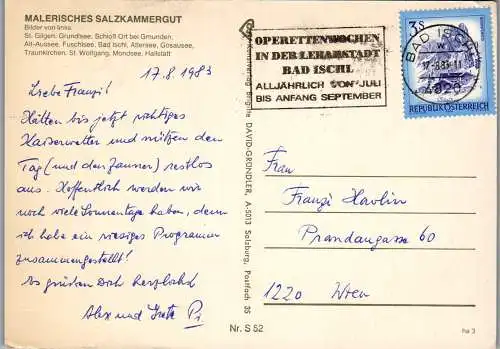 MALERISCHES SALZKAMMERGUT
Bilder von links:
St. Gilgen, Grundlsee, Schloß Ort bei Gmunden,
Alt-Aussee, Fuschlsee, Bad Ischl, Attersee, Gosausee,
Traunkirchen, St. Wolfgang, Mondsee, Hallstatt
17.8.1983
Liebe Franzi!
Hätten bis jetzt richtiges
Kaiserwetter und nützen den
Tag (und den Zauner) restlos
aus. Hoffentlich werden wir
noch viele Sonnentage haben, denn
ich habe ein riesiges Programm
zusammengestellt!
Es grüßen Dich herzlichst
Alex und Grete
Nr. S 52
Kunstverlag Brigitte DAVID-GRÜNDLER, A-5013 Salzburg, Postfach 35
OPERETTENWOCHEN
IN DER LEHARSTADT
BAD ISCHL
ALLJÄHRLICH VON JULI
BIS ANFANG SEPTEMBER
BAD ISCHL
17.-8.83-11
4820
3S
REPUBLIK ÖSTERREICH
Frau
Franzi Havlin
Prandaugasse 60
1220 Wien